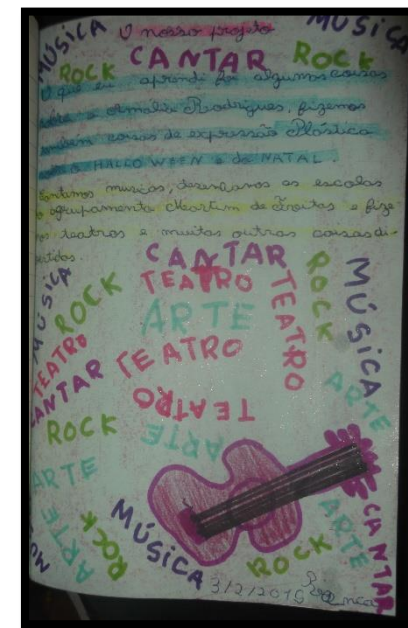 MÚSICA O nosso projeto MÚSICA
ROCK CANTAR ROCK
O que eu aprendi foi algumas cousas
sobre a Amália Rodrigues, fizemos
também coisas de expressão Plástica
como HALLOWEEN e do NATAL.
Cantimos musicas, desenhamos as escolas
o agrupamento Martim de Freitas e fize-
mos teatros e muitas outras coisas di-
vertidas.
CANTAR
MÚSICA
ROCK
TEATRO
ROCK
MÚSICA
ARTE
TEATRO
TEATRO
TEATRO
CANTAR
TEATRO
ARTE
ROCK
ARTE
ARTE
ROCK
ARTE
MÚSICA
ROCK
ARTE
CANTAR
3/2/2015